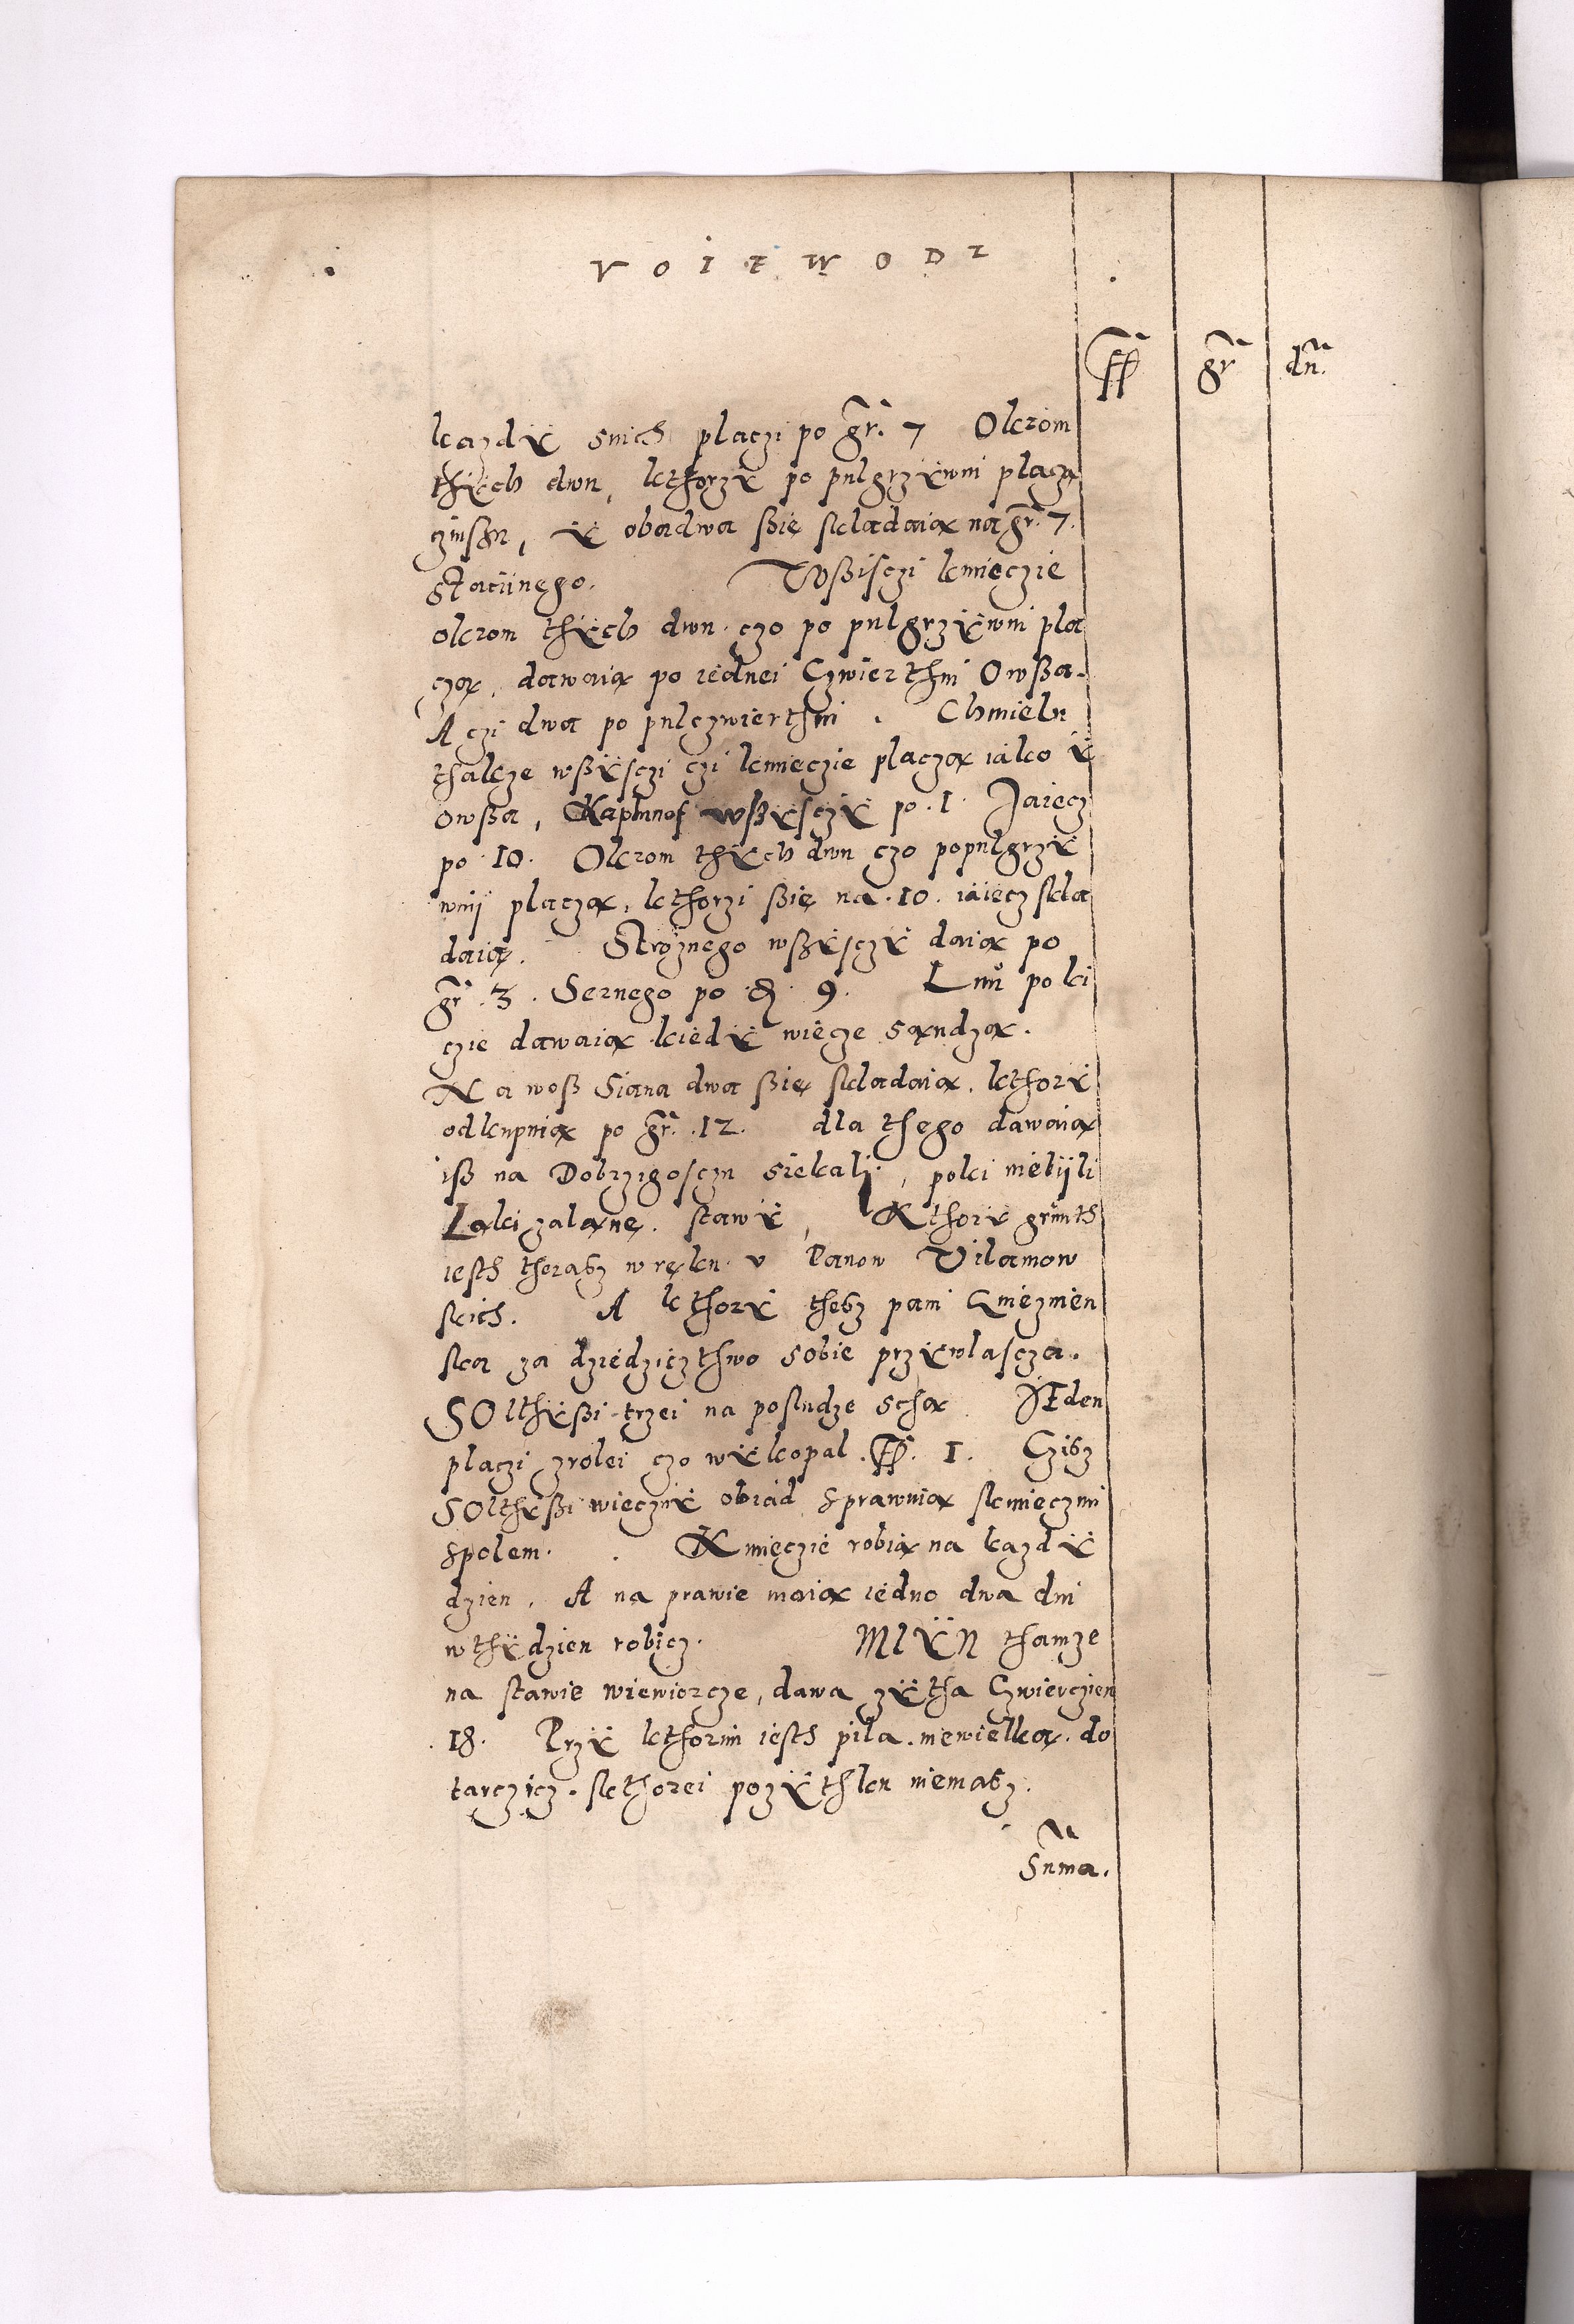 VOIEWODZ
ff gr dn.
kazdÿ snich placzi po gr. 7 Okrom
thÿch dwu, kthorzÿ po pulgrzÿwni placzą
czinszu, ÿ obadwa ßię składaią na gr. 7.
Stacÿinego. Wßisczi kmieczie
okrom thÿch dwu czo po pulgrzÿwni pla
czą, dawaią po iednei Czwierthni Owßa.
A czi dwa po pulczwierthni. Chmielu
thakze wßÿsczi czi kmieczie placzą iako ÿ
owßa, Kapłunof wßÿsczÿ po .1. Jaiecz
po .10. Okrom thÿch dwu czo populgrzÿ
wnij placzą, kthorzi ßię na .10. iaiecz skla
daią. Stroznego wßÿsczÿ daią po
gr .3. Sernego po .d. 9. Lnu poki
czie dawaią kiedÿ wiecze sąndzą.
Na woß Siana dwa ßię składaią, kthorÿ
odkupuią po gr. .12. dla thego dawaią
iß na Dobrzigosczu siekali, poki niebÿli
Łąki zalane. stawÿ, Kthorÿ grunth
iesth therasz w ręku v Panow Vilamow
skich. A kthorÿ thesz pani Gnieznien
ska za dziedzicztwo sobie przÿwlascza.
SOlthÿßi trzei na posludze schą JEden
placzi zrolei czo wÿkopal .ff. 1. Czisz
SOlthÿßi wiecznÿ obiad sprawuią skmieczmi
spolem. Kmieczie robią na kazdÿ
dzien. A na prawie maią iedno dwa dni
wthÿdzien robicz. MlŸN thamze
na stawie wiewiorcze, dawa zÿtha Czwierczien
.18. Przÿ kthorim iesth pila. niewielka. do
tarczicz. skthorei pozÿthku niemasz.
Suma.